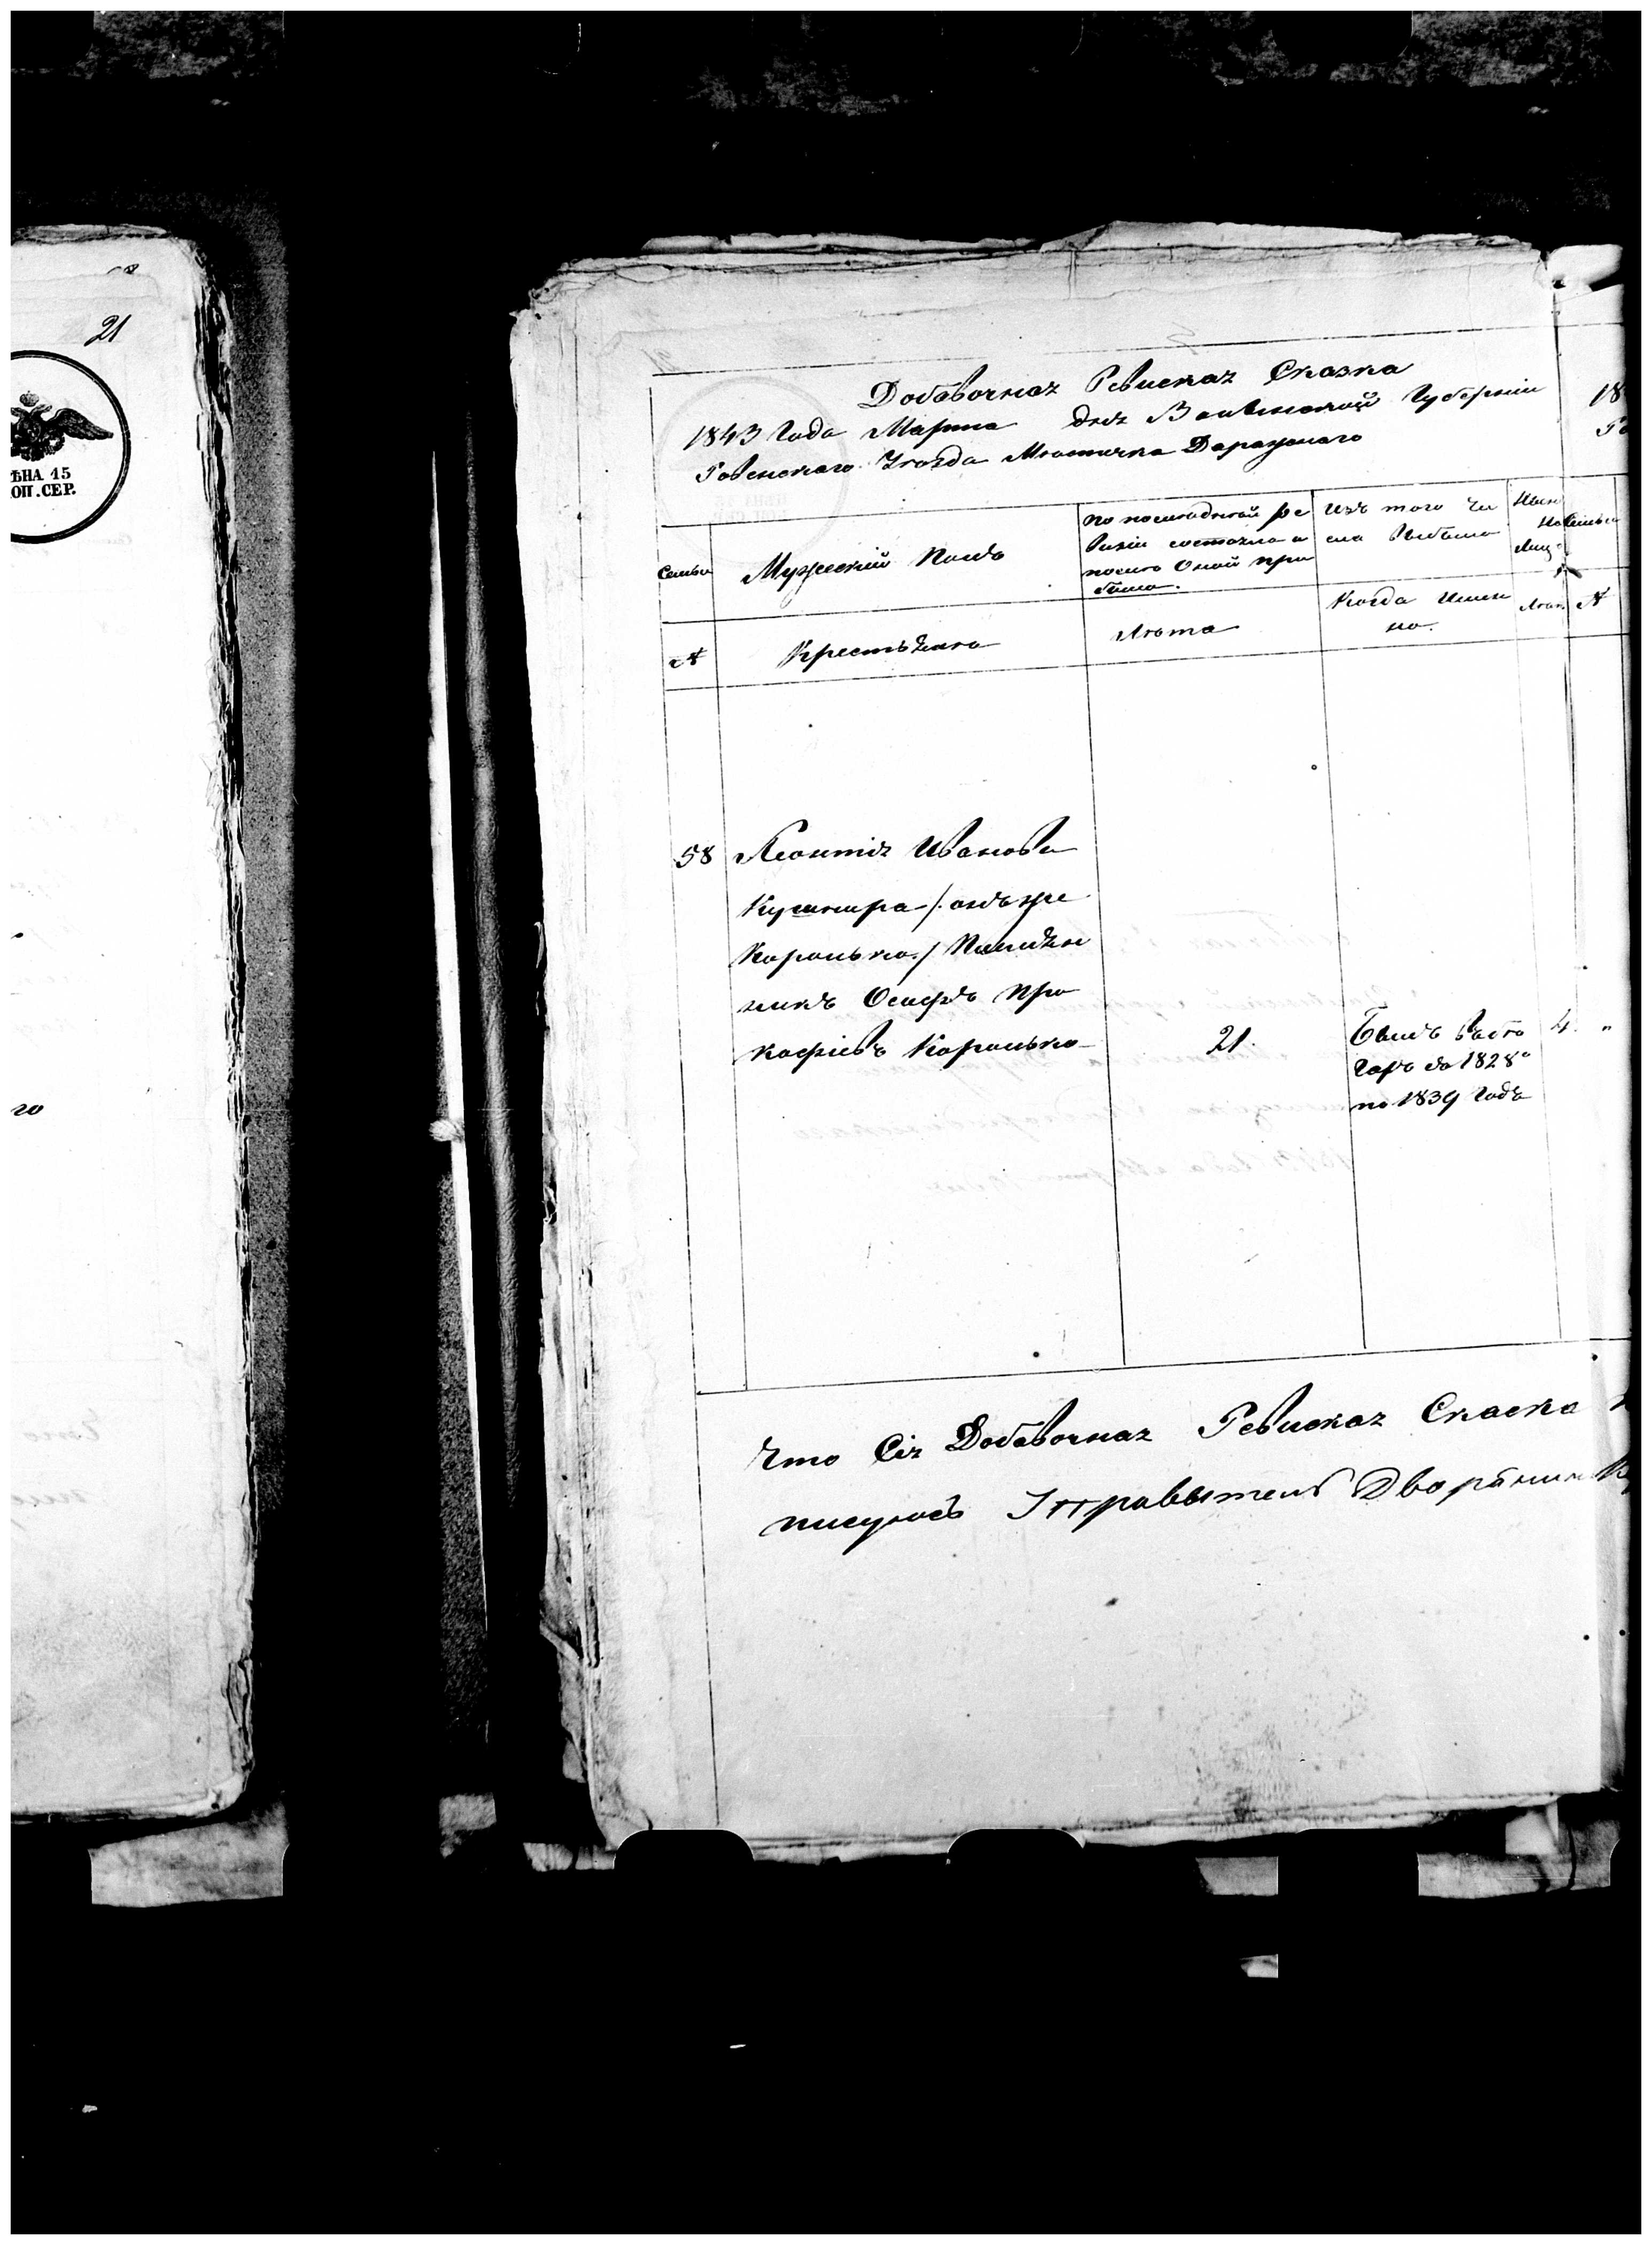 21
ѢНА 15
ОП. СЕР.
го
Добавочная Ревиская Сказка
1843 Года Марта дня Волынской Губерніи
Ровенскаго Уѣзда Мѣстечка Деражнаго
18
Семьи
Мужескій Полъ
По послѣдней ре
визіи состояло и
послѣ Оной при
было.
Изъ того Чи
сла Выбыло
Семьи
№
Крестьяне
Лѣта
Когда Имен
но.
№
58
Леонтія Иванова
Кушнира / онъ же
Королько / Племян
никъ Осифъ Про
кофіевъ Королько
21.
Былъ въ бѣ
гахъ съ 1828
по 1839 Годъ
4.
Что Сія Добавочная Ревиская Скаска
писуюсь Управытель Дворанин